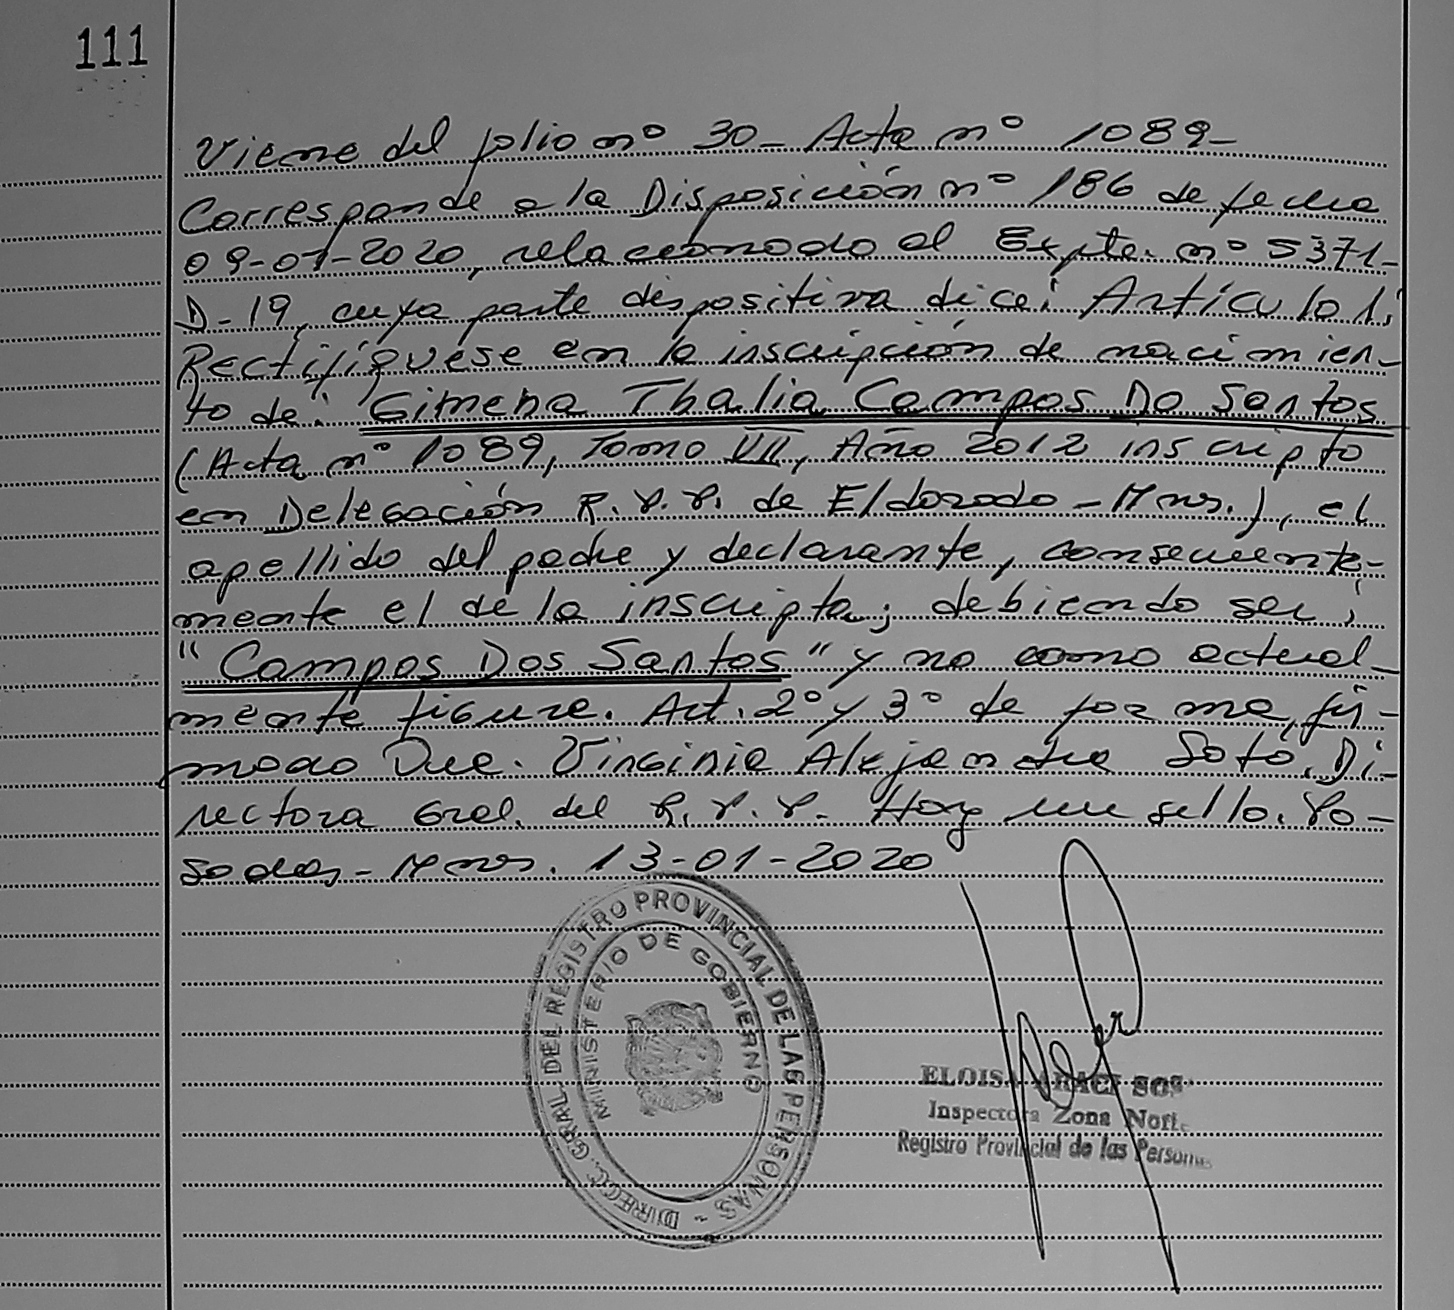 111
Viene del folio nº 30_ Acta nº 1089_
Corresponde a la Disposición nº 186 de fecha
09-01-2020, relacionado al Expte. nº 5371-
D-19, cuya parte dispositiva dice: Artículo 1:
Rectifíquese en la inscripción de nacimien-
to de: Gimena Thalia Campos Do Santos
(Acta nº 1089, Tomo VII, Año 2012 inscripto
en Delegación R.P.P. de Eldorado - Mnes.), el
apellido del padre y declarante, consecuente-
mente el de la inscripta; debiendo ser:
"Campos Dos Santos" y no como actual-
mente figura. Art. 2º y 3º de forma, fir-
mado Dra. Virginia Alejandra Soto, Di-
rectora Gral. del R.P.P. Hay un sello. Po-
sadas, - Mnes. 13-01-2020
DIRECC. GRAL. DEL REGISTRO PROVINCIAL DE LAS PERSONAS -
MINISTERIO DE GOBIERNO
ELOISA
Inspectora Zona Norte
Registro Provincial de las Personas